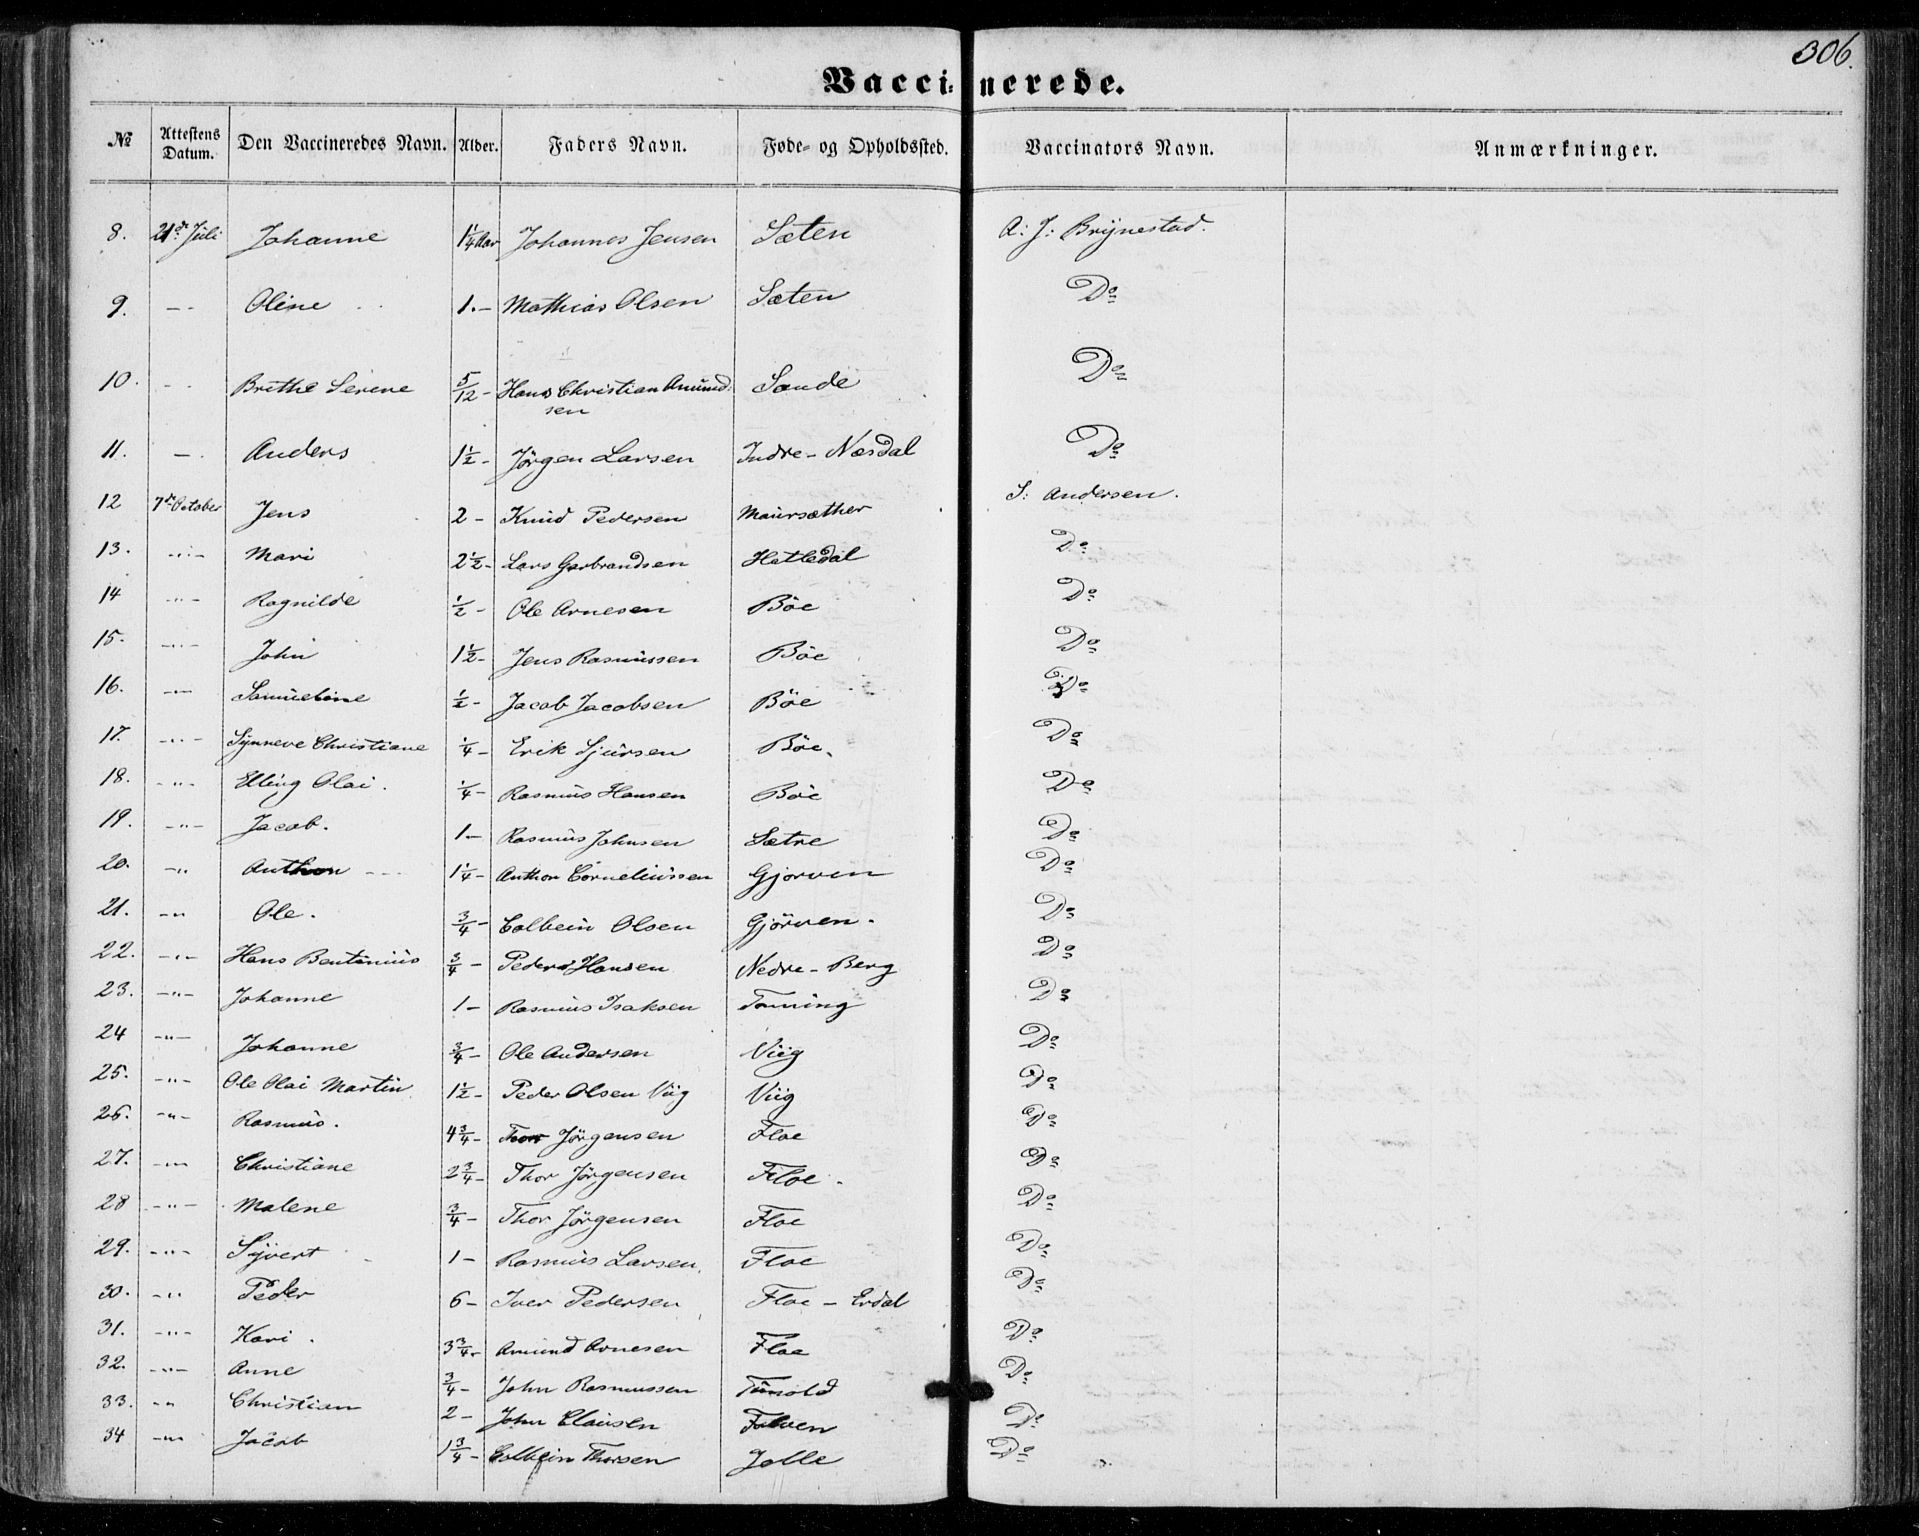 306.
Vaccinerede.
№ Attestens Datum. Den Vaccineredes Navn. Alder. Faders Navn. Føde- og Opholdssted. Vaccinators Navn. Anmærkninger.
8. 21de Juli Johanne 1¼ Aar Johannes Jensen Sæten A: J: Brynestad.
9. -- Oline 1.- Mathias Olsen Sæten Do
10. -- Brithe Serene 5/12- Hans Christian Amund- Sande Do
sen
11. -- Anders 1½- Jørgen Larsen Indre-Næsdal Do
12 7de October Jens 2- Knud Pedersen Maursæther S: Andersen.
13. -"- Mari 2½- Lars Garbrandsen Hatledal Do
14 -"- Ragnilde ½- Ole Arnesen Böe Do
15. -"- John 1½- Jens Rasmussen Böe Do
16. -"- Samueline ½- Jacob Jacobsen Böe Do
17. -"- Synneve Christiane ¼- Erik Sjursen Böe. Do
18. -"- Elling Olai. ¼- Rasmus Hansen Böe Do
19. -"- Jacob. 1.- Rasmus Johnsen Sætre Do
20. -" Anthon 1¼- Anthon Corneliussen Gjörven Do
21. -" Ole. ¾- Colbein Olsen Gjörven. Do
22. -"- Hans Bentinius ¾- Peder Hansen Nedre-Berg Do
23. -"- Johanne 1- Rasmus Isaksen Tonning Do
24 -"- Johanne ¾- Ole Andersen Viig Do
25. -"- Ole Olai Martin. 1½- Peder Olsen Viig Viig Do
26. -"- Rasmus. 4¾- Thor Jörgensen Floe Do
27. -"- Christiane 2¾- Thor Jörgensen Floe. Do
28 -"- Malene ¾- Thor Jörgensen Floe Do
29. -"- Syvert 1- Rasmus Larsen. Floe Do
30. -" Peder 6- Iver Pedersen Floe-Erdal Do
31. -"- Kari. 3¾- Amund Arnesen Floe Do
32. -"- Anne ¾- John Rasmussen Do
33. -" Christian 2- John Clausen Folven Do
34 -"- Jacob 1¾- Colbein Thorsen Jolle Do